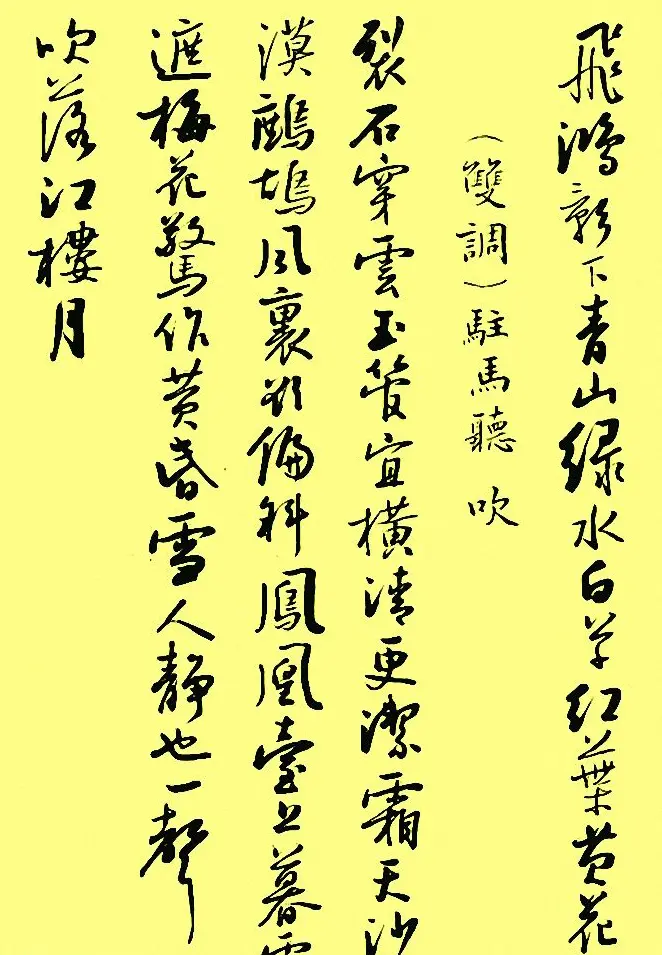 飛鴻影下青山綠水白草紅葉黃花
（雙調）駐馬聽 吹
裂石穿雲玉管宜橫清更潔霜天沙
漠鷓鴣風裏欲偏斜鳳凰臺上暮
遮梅花驚作黃昏雪人靜也一聲
吹落江樓月